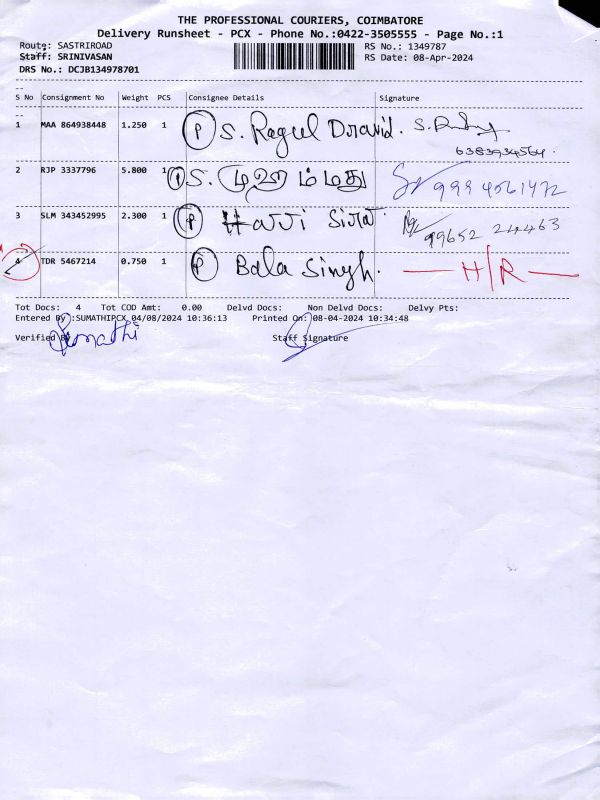 THE PROFESSIONAL COURIERS, COIMBATORE
Delivery Runsheet - PCX - Phone No.:0422-3505555 - Page No.:1
Route: SASTRIROAD RS No.: 1349787
Staff: SRINIVASAN RS Date: 08-Apr-2024
DRS No.: DCJB134978701
S No Consignment No Weight PCS Consignee Details Signature
1 MAA 864938448 1.250 1 P S. Raguel Dravid.
6383934564
2 RJP 3337796 5.800 1 P S. 9994061472
3 SLM 343452995 2.300 1 P Harri Siva 99652 24463
4 TDR 5467214 0.750 1 P Bala Singh. H/R
Tot Docs: 4 Tot COD Amt: 0.00 Delvd Docs: Non Delvd Docs: Delvy Pts:
Entered By :SUMATHIPCX 04/08/2024 10:36:13 Printed On: 08-04-2024 10:34:48
Verified By Sumathi Staff Signature